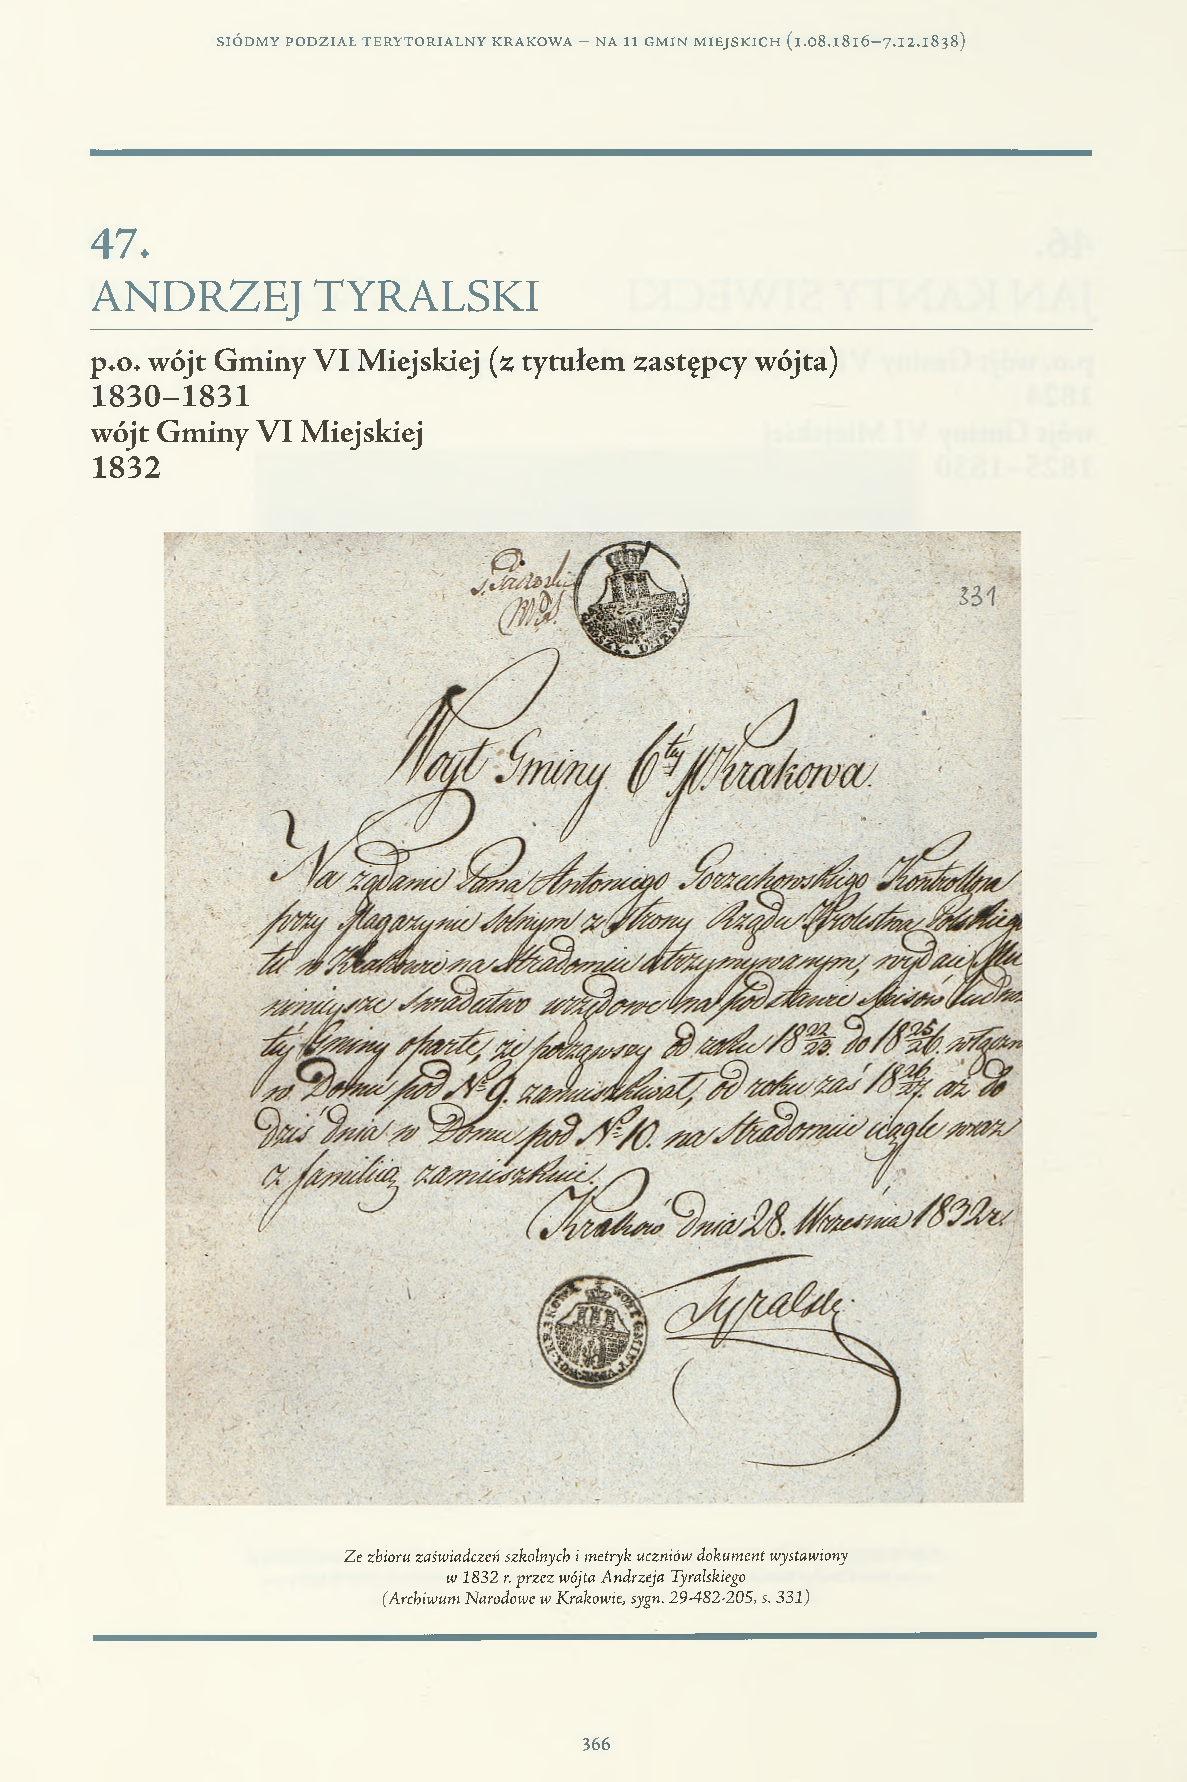 SIÓDMY PODZIAŁ TERYTORIALNY KRAKOWA – NA 11 GMIN MIEJSKICH (1.08.1816–7.12.1838)
47.
ANDRZEJ TYRALSKI
p.o. wójt Gminy VI Miejskiej (z tytułem zastępcy wójta)
1830–1831
wójt Gminy VI Miejskiej
1832
331
Woyt Gminy 6téy M Krakowa.
Na żądanie Pana Antoniego Gorzechowskiego Kontrollera
przy Magazynie Solnym z strony Rządu Królestwa Polskiego
tu w Krakowie na Stradomiu utrzymywanym, wydaię Mu
ninieysze Swiadectwo urzędowe na podstawie Spisów Ludno
téy Gminy oparte, że począwszy od roku 18 22/23. do 18 25/26. włączn
w Domu pod Nº 9. zamieszkiwał, od roku zaś 18 26/27. aż do
dziś dnia w Domu pod Nº 10. na Stradomiu ciągle wraz
z familią zamieszkuie.
Kraków dnia 28. Września 1832 r.
Tyralski
Ze zbioru zaświadczeń szkolnych i metryk uczniów dokument wystawiony
w 1832 r. przez wójta Andrzeja Tyralskiego
(Archiwum Narodowe w Krakowie, sygn. 29-482-205, s. 331)
366